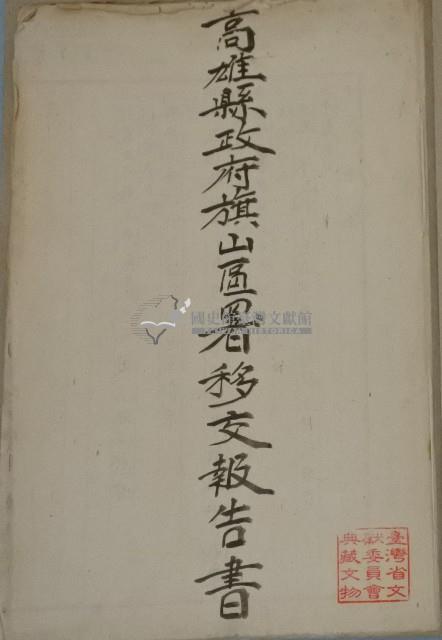 高雄縣政府旗山區署移交報告書
國史館臺灣文獻館
臺灣省文
獻委員會
典藏文物